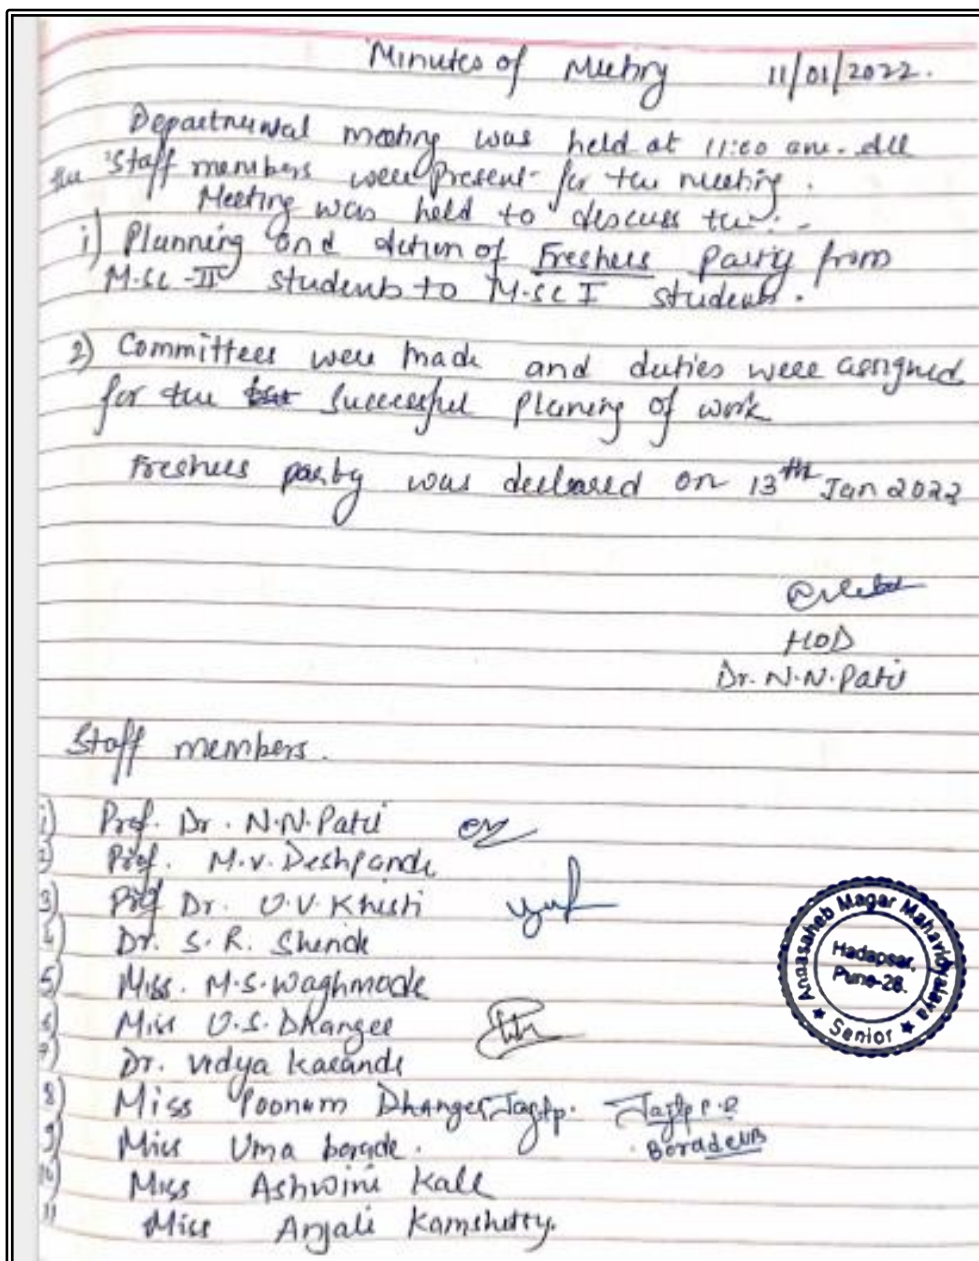 Minutes of Meeting 11/01/2022.
Departmental meeting was held at 11:00 am. All
the Staff members were Present for the meeting.
Meeting was held to discuss the :-
1) Planning and of Freshers Party from
M.Sc-II students to M.Sc I students.
2) Committees were made and duties were assigned
for the successful planing of work
Freshers party was declared on 13th Jan 2022
HOD
Dr. N.N. Patil
Staff members.
1) Prof. Dr. N.N. Patil
2) Prof. M.V. Deshpande
3) Prof Dr. U.V. Khisti
4) Dr. S.R. Shende
5) Miss. M.S. Waghmode
6) Miss U.S. Dhangee
7) Dr. Vidya Karande
8) Miss Poonam Dhanger
9) Miss Uma borade. Borade UB
10) Miss Ashwini Kale
11 Miss Anjali Kamshetty.
Annasaheb Magar Mahavidyalaya
Hadapsar,
Pune-28.
★ Senior ★